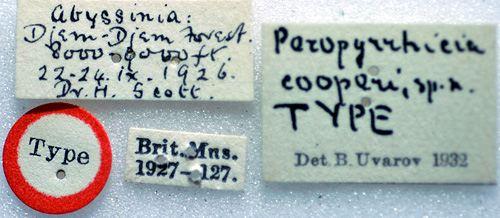 Abyssinia:
Djem-Djem Forest.
8000-9000 ft.
22-24.ix.1926.
Dr. H. Scott.
Type
Brit. Mus.
1927-127.
Peropyrrhicia
cooperi, sp. n.
TYPE
Det. B. Uvarov 1932